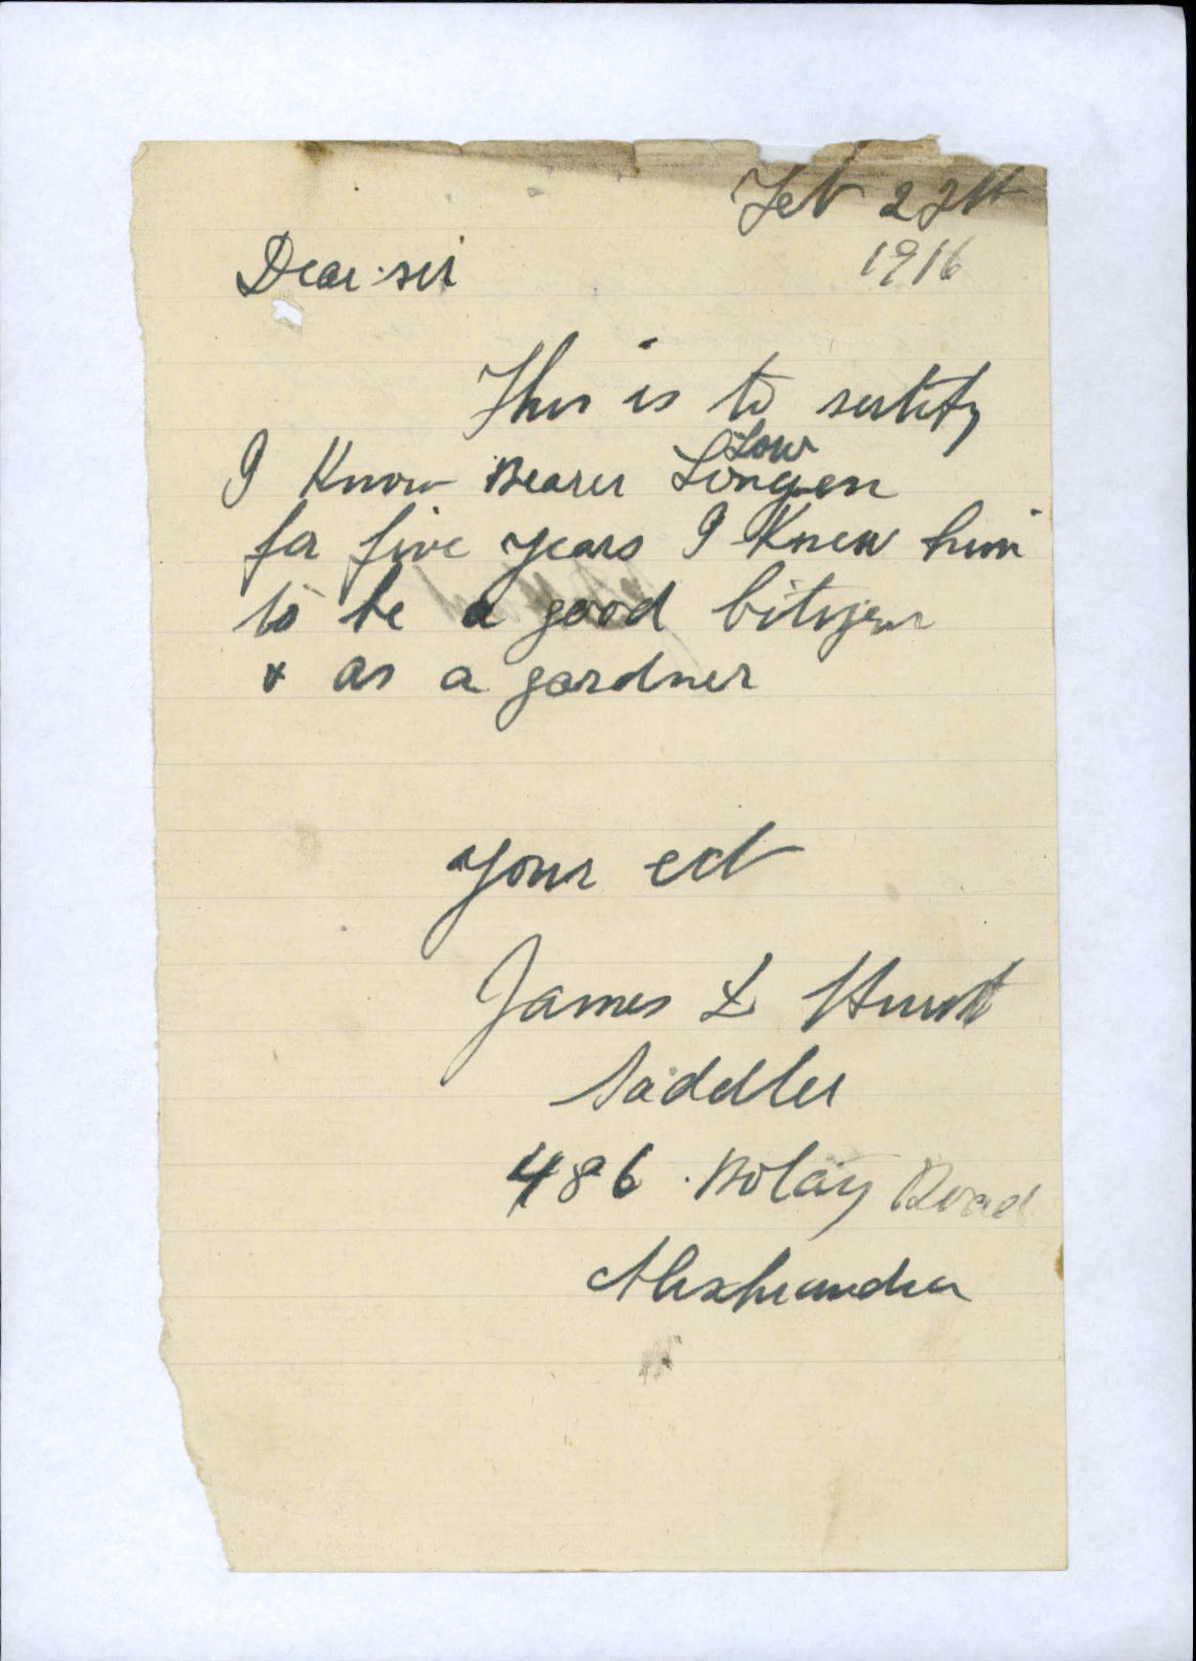 Feb 22st
1916
Dear sir
This is to sertify
Low
I Know Bearer Longen
for five years I Knew him
to be a good bitizen
& as a gardner
your ect
James L Hurst
Saddler
486 Botany Road
Alexhandra